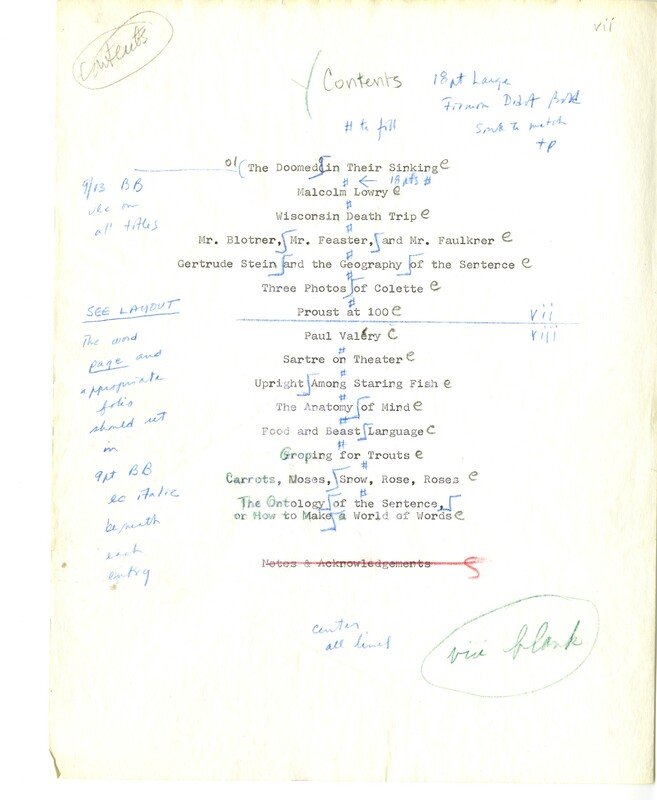 vii
contents
Contents
18pt Large
Firmin Didot
Smith to match
tp
# to fill
The Doomed in Their Sinking
← 18 pts #
Malcolm Lowry
9/13 BB
use on
all titles
Wisconsin Death Trip
Mr. Blotner, Mr. Feaster, and Mr. Faulkner
Gertrude Stein and the Geography of the Sentence
Three Photos of Colette
Proust at 100
vii
viii
Paul Valéry
Sartre on Theater
Upright Among Staring Fish
The Anatomy of Mind
Food and Beast Language
Groping for Trouts
Carrots, Moses, Snow, Rose, Roses
The Ontology of the Sentence,
or How to Make a World of Words
Notes & Acknowledgements
SEE LAYOUT
The word
page and
appropriate
folio
should set
in
9pt BB
lc italic
beneath
each
entry
center
all lines
viii blank